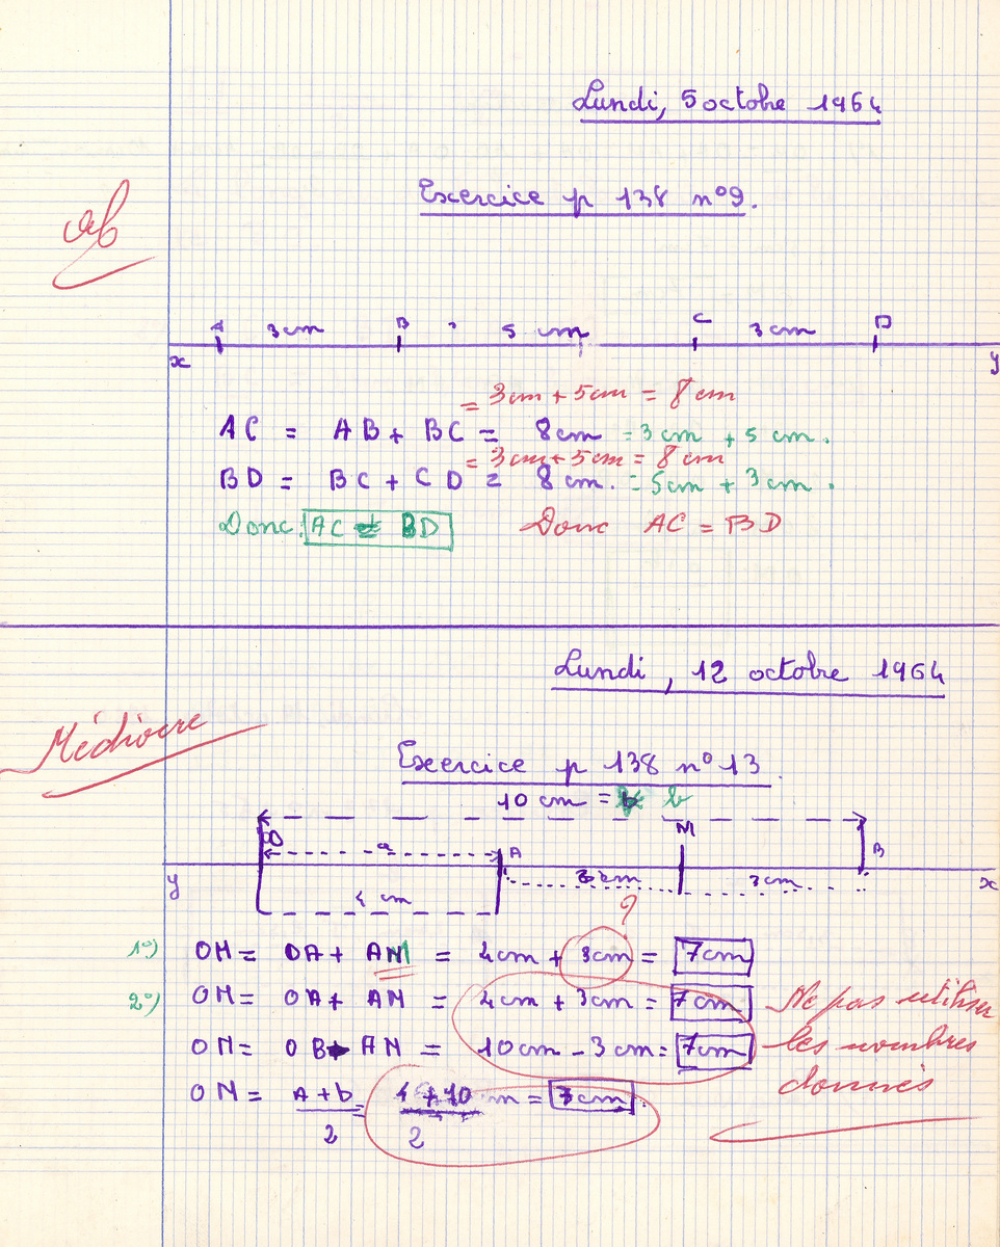 Lundi, 5 octobre 1964
Exercice p 138 n°9.
A 3cm B 5 cm C 3cm D
x y
= 3cm + 5cm = 8cm
AC = AB + BC = 8cm = 3cm + 5 cm.
= 3cm + 5cm = 8cm
BD = BC + CD = 8cm. = 5cm + 3cm.
Donc: AC = BD Donc AC = BD
Lundi, 12 octobre 1964
Médiocre
Exercice p 138 n°13.
10 cm = b
M
O a A B
y 3cm 3cm x
4 cm
?
1°) OM = OA + AM = 4cm + 3cm = 7cm
2°) OM = OA + AM = 4cm + 3cm = 7cm Ne pas utiliser
OM = OB - AM = 10cm - 3cm = 7cm les nombres
OM = A + b = 4 + 10 cm = 7cm. donnés
2 2